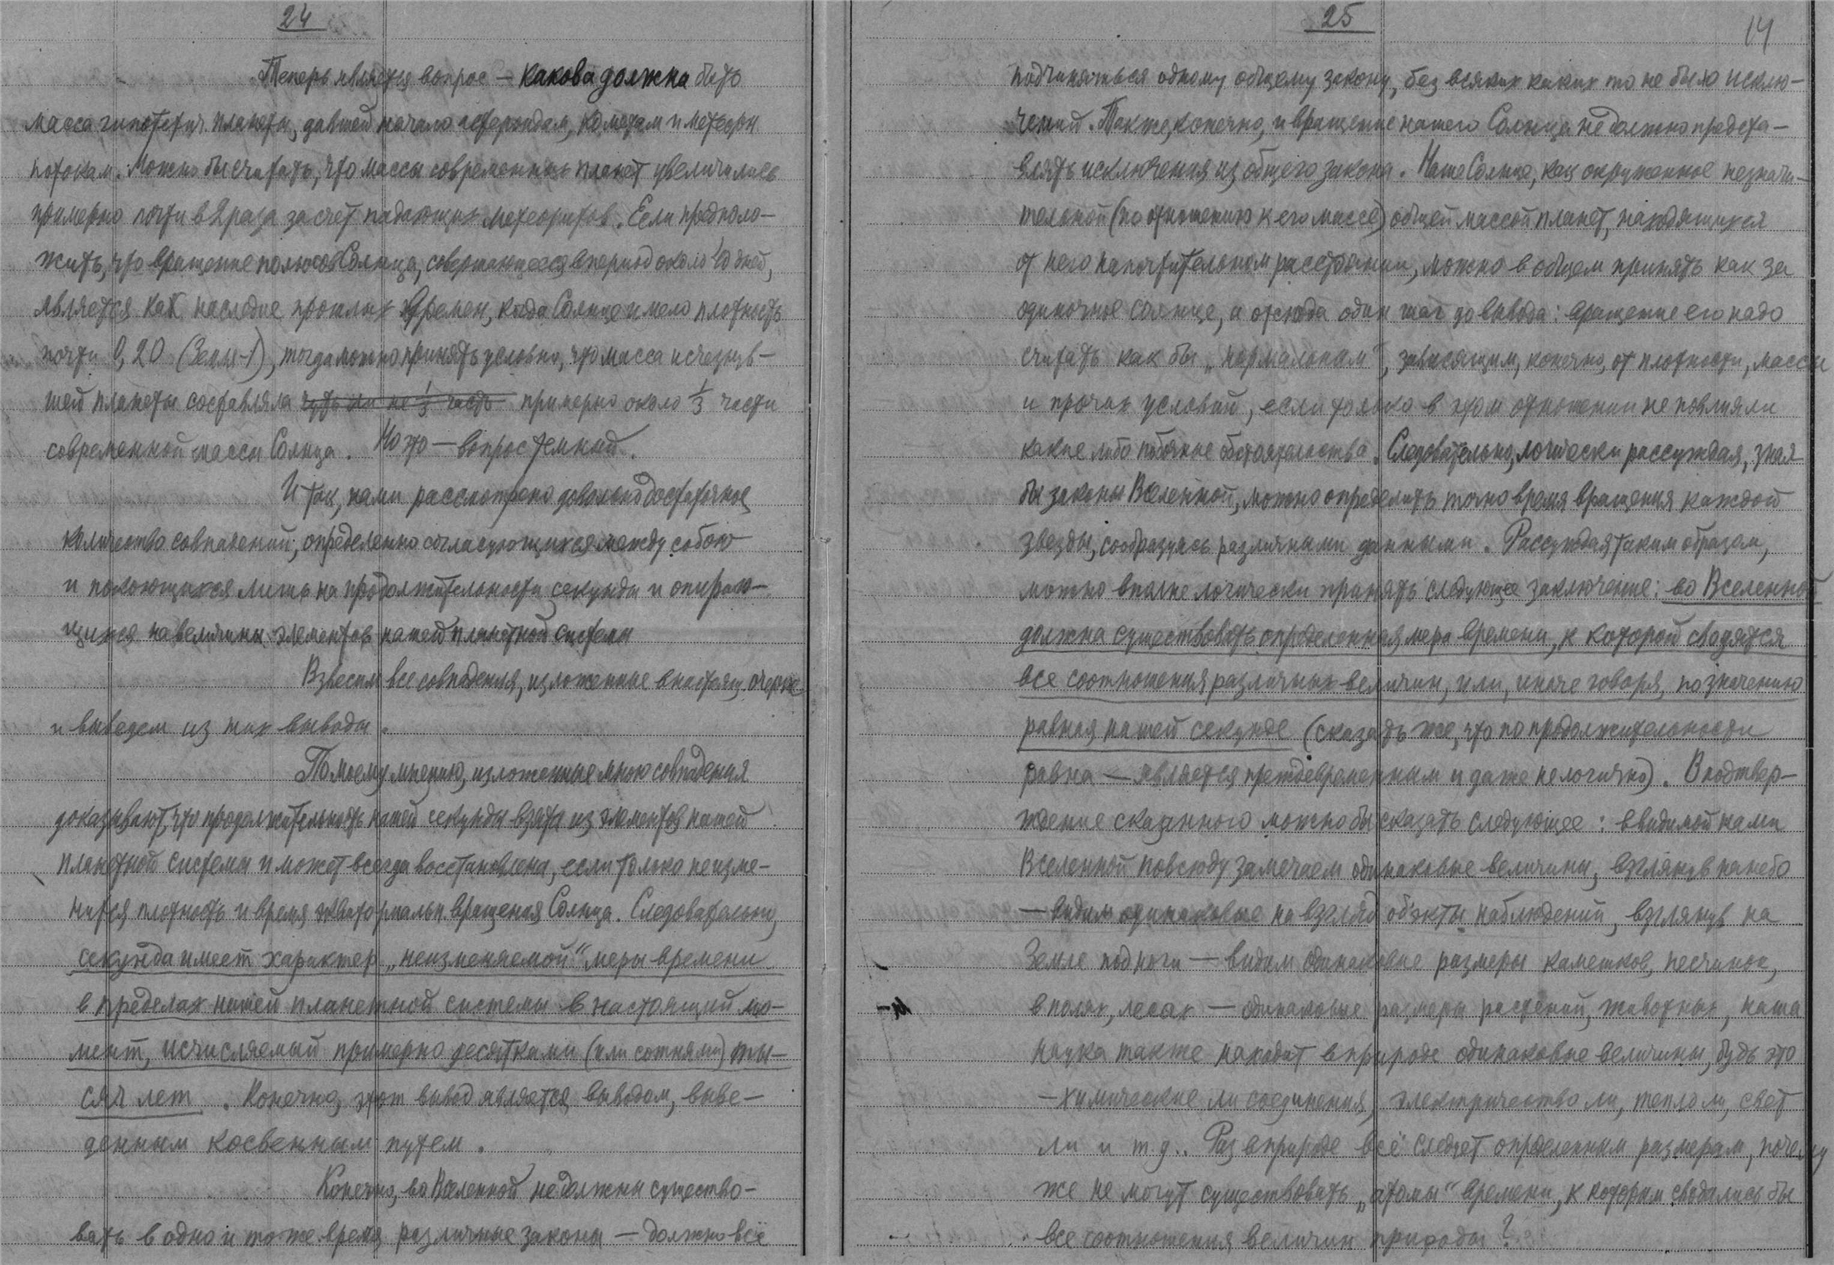 24
Теперь является вопрос — какова должна быть
масса гипотетич. планеты, давшей начало астероидам, кометам и метеорн.
потокам. Можно бы считать, что массы современных планет увеличились
примерно почти в 2 раза за счет падающих метеоритов. Если предполо-
жить, что вращение полюсов Солнца, совершающееся в период около дней,
является как наследие прошлых времен, когда Солнце имело плотность
почти 0,20 (Земля-1), тогда можно принять условно, что масса исчезнув-
шей планеты составляла чуть ли не 1/3 часть примерно около 1/3 части
современной массы Солнца. Но это — вопрос темный.
Итак, нами рассмотрено довольно достаточное
количество совпадений, определенно согласующихся между собою
и покоющихся лишь на продолжительности секунды и опираю-
щихся на величины элементов нашей планетной системы
Взвесим все совпадения, изложенные в настоящ. очерке
и выведем из них выводы.
По моему мнению, изложенные мною совпадения
доказывают, что продолжительность нашей секунды взята из элементов нашей
планетной системы и может всегда восстановлена, если только не изме-
нится плотность и время экваториальн. вращения Солнца. Следовательно,
секунда имеет характер „неизменяемой“ меры времени
в пределах нашей планетной системы в настоящий мо-
мент, исчисляемый примерно десятками (или сотнями) ты-
сяч лет. Конечно, этот вывод является выводом, выве-
денным косвенным путем.
Конечно, во Вселенной не должны существо-
вать в одно и то же время различные законы — должно всё
25
14
подчиняться одному общему закону, без всяких каких то не было исклю-
чений. Также, конечно, и вращение нашего Солнца не должно предста-
влять исключения из общего закона. Наше Солнце, как окруженное незначи-
тельной (по отношению к его массе) общей массой планет, находящихся
от него на почтительном расстоянии, можно в общем принять как за
одиночное солнце, а отсюда один шаг до вывода: вращение его надо
считать как бы „нормальным“, зависящим, конечно, от плотности, массы
и прочих условий, если только в этом отношении не повлияли
какие либо побочные обстоятельства. Следовательно, логически рассуждая, зная
бы законы Вселенной, можно определить точно время вращения каждой
звезды, сообразуясь различными данными. Рассуждая таким образом,
можно вполне логически принять следующее заключение: во Вселенной
должна существовать определенная мера времени, к которой сводятся
все соотношения различных величин, или, иначе говоря, по значению
равная нашей секунде (сказать же, что по продолжительности
равна — является преждевременным и даже нелогично). В подтвер-
ждение сказанного можно бы сказать следующее: в видимой нами
Вселенной повсюду замечаем одинаковые величины, взглянув на небо
— видим одинаковые на взгляд объэкты наблюдений, взглянув на
Земле под ноги — видим одинаковые размеры камешков, песчинок,
в полях, лесах — одинаковые размеры растений, животных, наша
наука также находит в природе одинаковые величины, будь это
— химические ли соединения, электричество ли, тепло ли, свет
ли и т д.. Раз в природе всё следует определенным размерам, почему
же не могут существовать „атомы“ времени, к которым сводились бы
все соотношения величин природы?